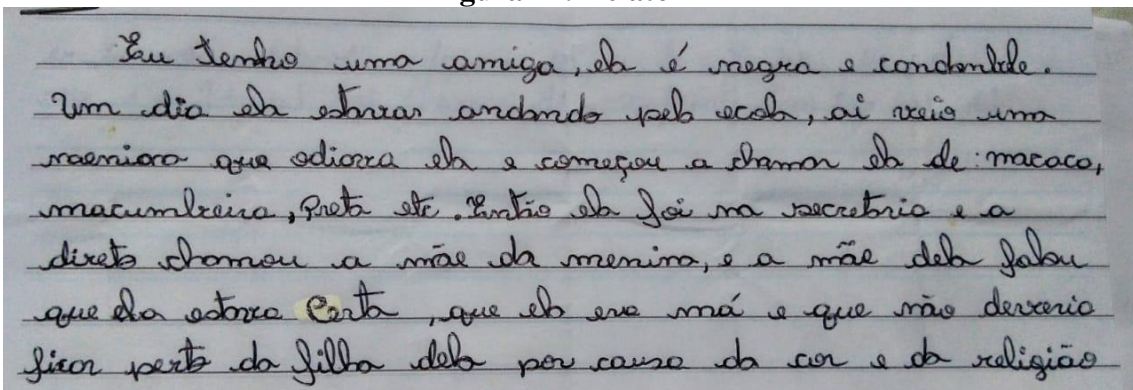 Eu tenho uma amiga, ela é negra e condonblde.
Um dia ela estavar andando pela ecola, ai veio uma
maeniora que odiava ela e começou a chamar ela de: macaco,
macumbreira, Preta etc. Então ela foi na secretaria e a
direto chamou a mãe da menina, e a mãe dela falou
que ela estava Certa, que ela era má e que não deveria
ficar perto da filha dela por causa da cor e da religião